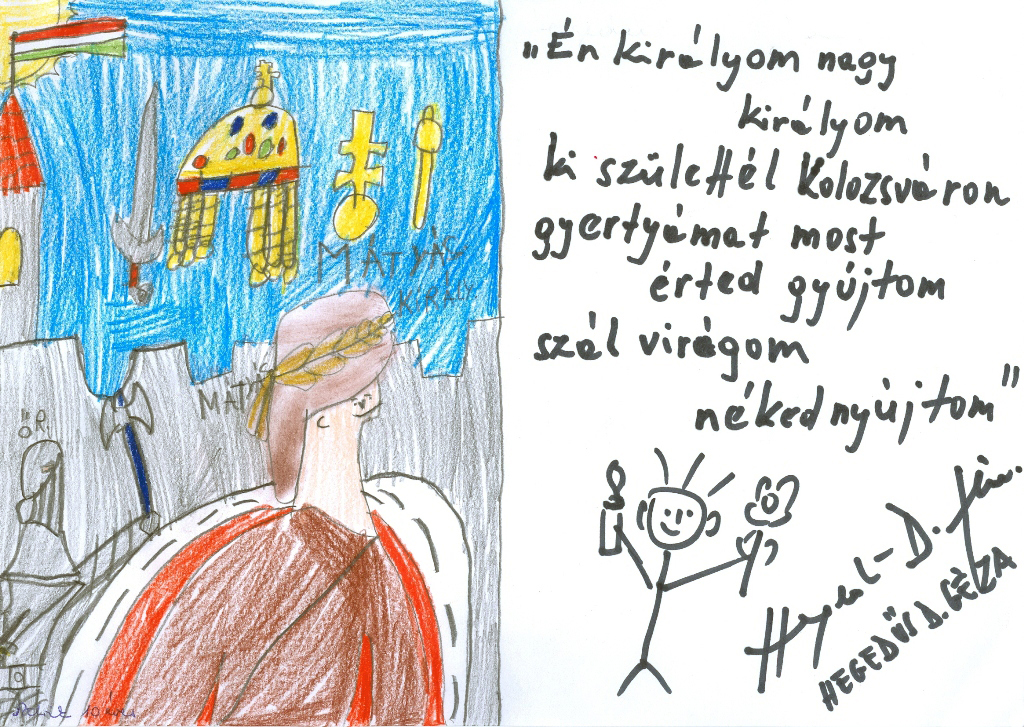 MÁTYÁS
KIRÁLY
MATYÁS
ŐR
„Én királyom nagy
királyom
ki születtél Kolozsváron
gyertyámat most
érted gyújtom
szál virágom
néked nyújtom"
HEGEDŰS D. GÉZA